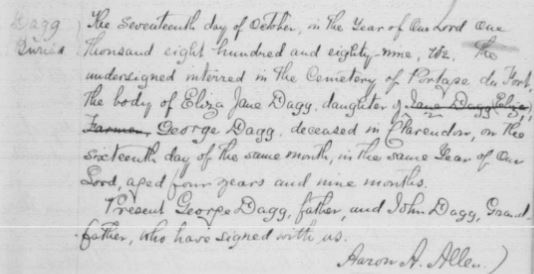 Dagg
Buried
The Seventeenth day of October, in the Year of Our Lord One
thousand eight hundred and eighty-nine, We. The
undersigned interred in the Cemetery of Portage du Fort,
the body of Eliza Jane Dagg, daughter of Jane Dagg (Eliza),
Farmer George Dagg, deceased in Clarendon, on the
sixteenth day of the same month, in the same Year of Our
Lord, aged four years and nine months.
Present George Dagg, father, and John Dagg, Grand
father, who have signed with us.
Aaron A. Allen.)